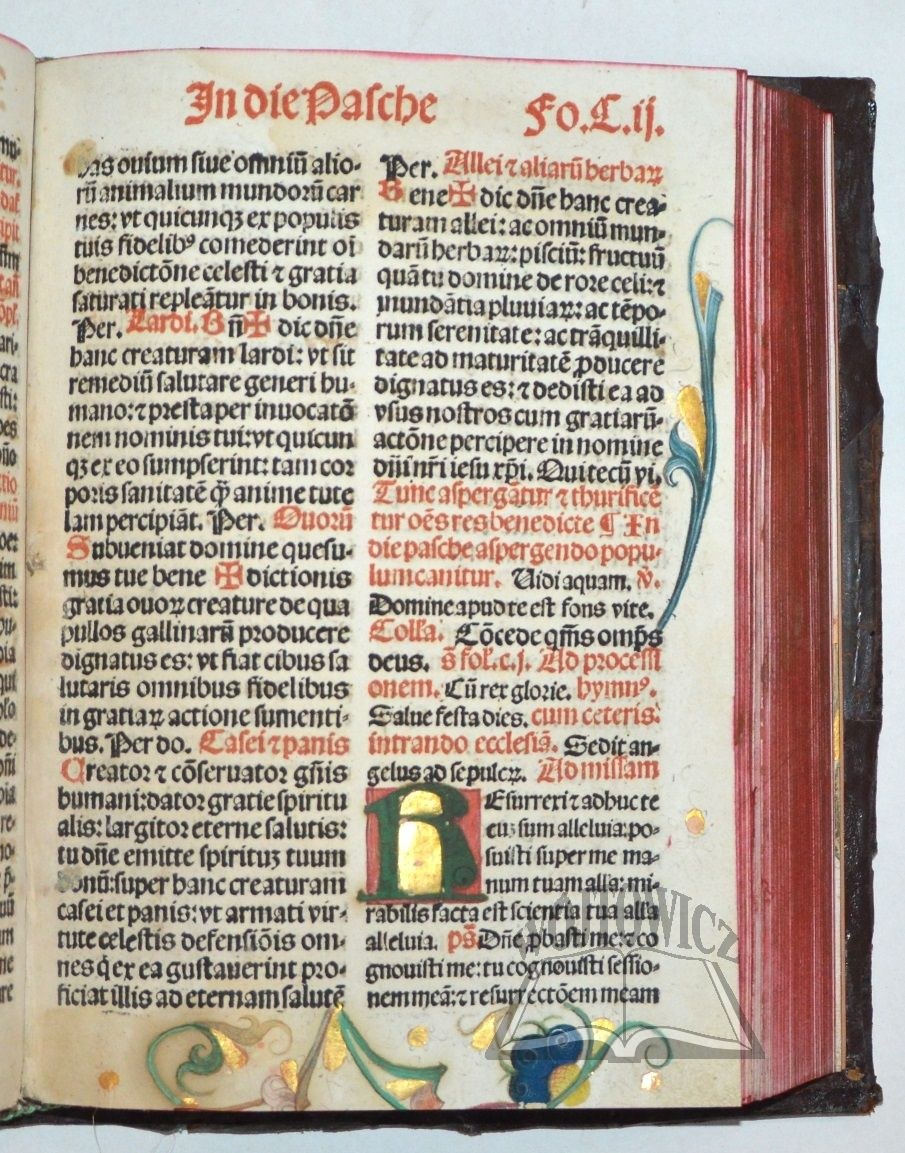 In die Pasche Fo.C.ij.
has ouium siue omniū alio-
rū animalium mundorū car
nes: vt quicunqꝫ ex populis
tuis fidelibꝰ comederint oī
benedictōne celesti ⁊ gratia
saturati repleātur in bonis.
Per. Lardi. Bn̄✠ dic dn̄e
hanc creaturam lardi: vt sit
remediū salutare generi hu-
mano: ⁊ presta per inuocatō
nem nominis tui: vt quicun
qꝫ ex eo sumpserint: tam cor
poris sanitatē q̄ꝫ anime tute
lam percipiāt. Per. Ouorū
Subueniat domine quesu-
mus tue bene ✠ dictionis
gratia ouoꝝ creature de qua
pullos gallinarū producere
dignatus es: vt fiat cibus sa
lutaris omnibus fidelibus
in gratiaꝝ actione sumenti-
bus. Per do. Casei ⁊ panis
Creator ⁊ cōseruator gn̄is
humani: dator gratie spiritu
alis: largitor eterne salutis:
tu dn̄e emitte spirituꝫ tuum
donū: super hanc creaturam
casei et panis: vt armati vir-
tute celestis defensiōis om-
nes q̇ ex ea gustauerint pro-
ficiat illis ad eternam salutē
Per. Allei ⁊ aliarū herbaꝝ
Bene✠ dic dn̄e hanc crea-
turam allei: ac omniū mun-
darū herbaꝝ: pisciū: fructuū
quā tu domine de rore celi: ⁊
inundātia pluuiaꝝ: ac tēpo-
rum serenitate: ac trāquilli
tate ad maturitatē ꝓducere
dignatus es: ⁊ dedisti ea ad
vsus nostros cum gratiarū-
actōne percipere in nomine
dn̄i nr̄i iesu xp̄i. Qui tecū vi.
Tunc aspergātur ⁊ thurifice
tur oēs res benedicte ¶ In
die pasche aspergendo popu-
lum canitur. Uidi aquam. v̄.
Domine apud te est fons vite.
Collꝛa. Cōcede qm̄s omp̄s
deus. s̄ fol. c. j. Ad processi
onem. Cū rex glorie. hymnꝰ.
Salue festa dies. cum ceteris:
intrando ecclesiā. Sedit an-
gelus ad sepulcꝝ. Ad missam
Resurrexi ⁊ adhuc te
cuꝫ sum alleluia: po-
suisti super me ma-
num tuam alla: mi-
rabilis facta est scientia tua alla
alleluia. ps̄ Dn̄e ꝓbasti me: ⁊ co
gnouisti me: tu cognouisti sessio-
nem meā: ⁊ resurrectōem meam
WÓJTOWICZ